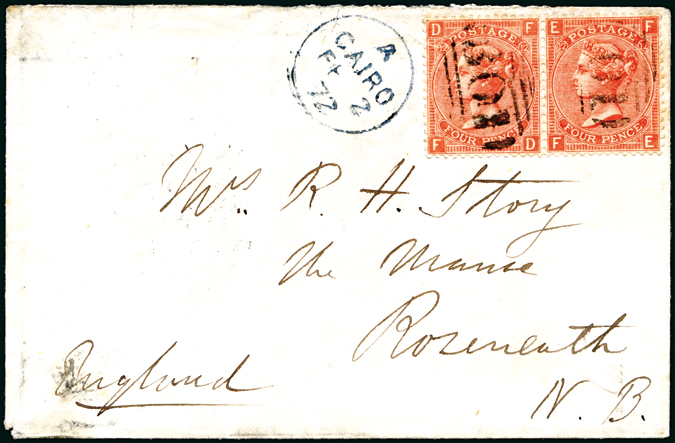 A
CAIRO
FE 2
72
D F
POSTAGE
FOUR PENCE
F D
E F
POSTAGE
FOUR PENCE
F E
Mrs. R. H. Story
The Manse
Roseneath
N. B.
England